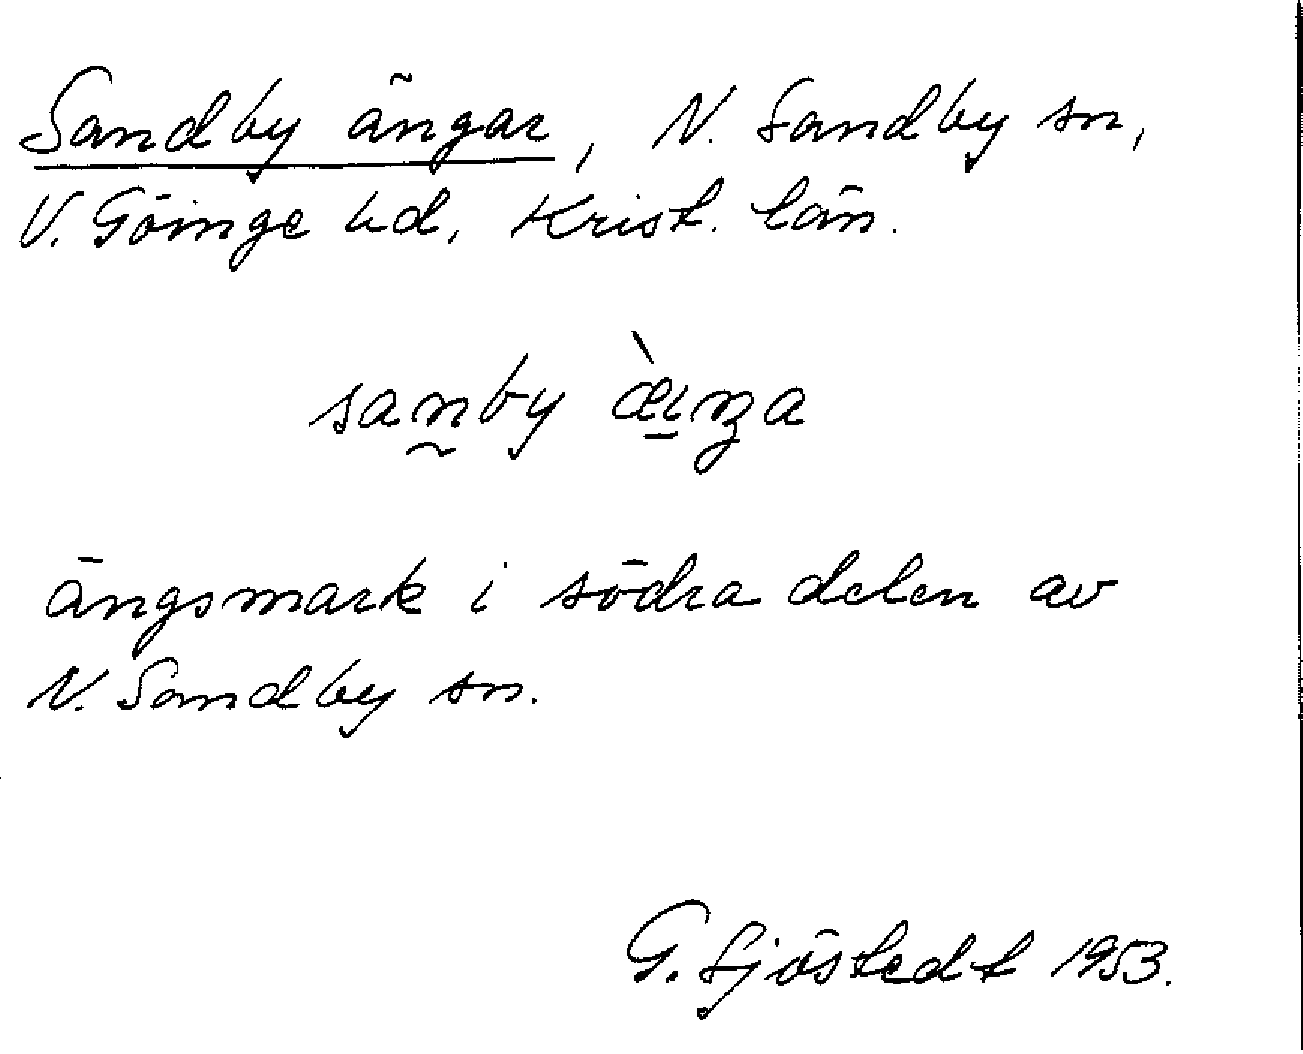 Sandby ängar, N. Sandby sn,
V. Göinge hd, Krist. län.
sanby
ängsmark i södra delen av
N. Sandby sn.
G. Sjöstedt 1953.